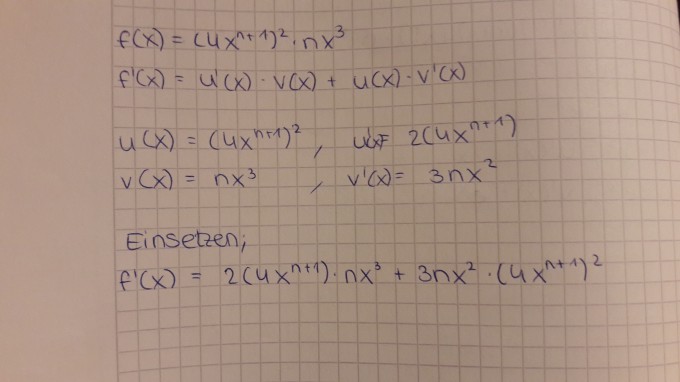 f(x) = (4xⁿ⁺¹)² · nx³
f'(x) = u'(x) · v(x) + u(x) · v'(x)
u(x) = (4xⁿ⁺¹)² , u'(x)= 2(4xⁿ⁺¹)
v(x) = nx³ , v'(x) = 3nx²
Einsetzen;
f'(x) = 2(4xⁿ⁺¹) · nx³ + 3nx² · (4xⁿ⁺¹)²